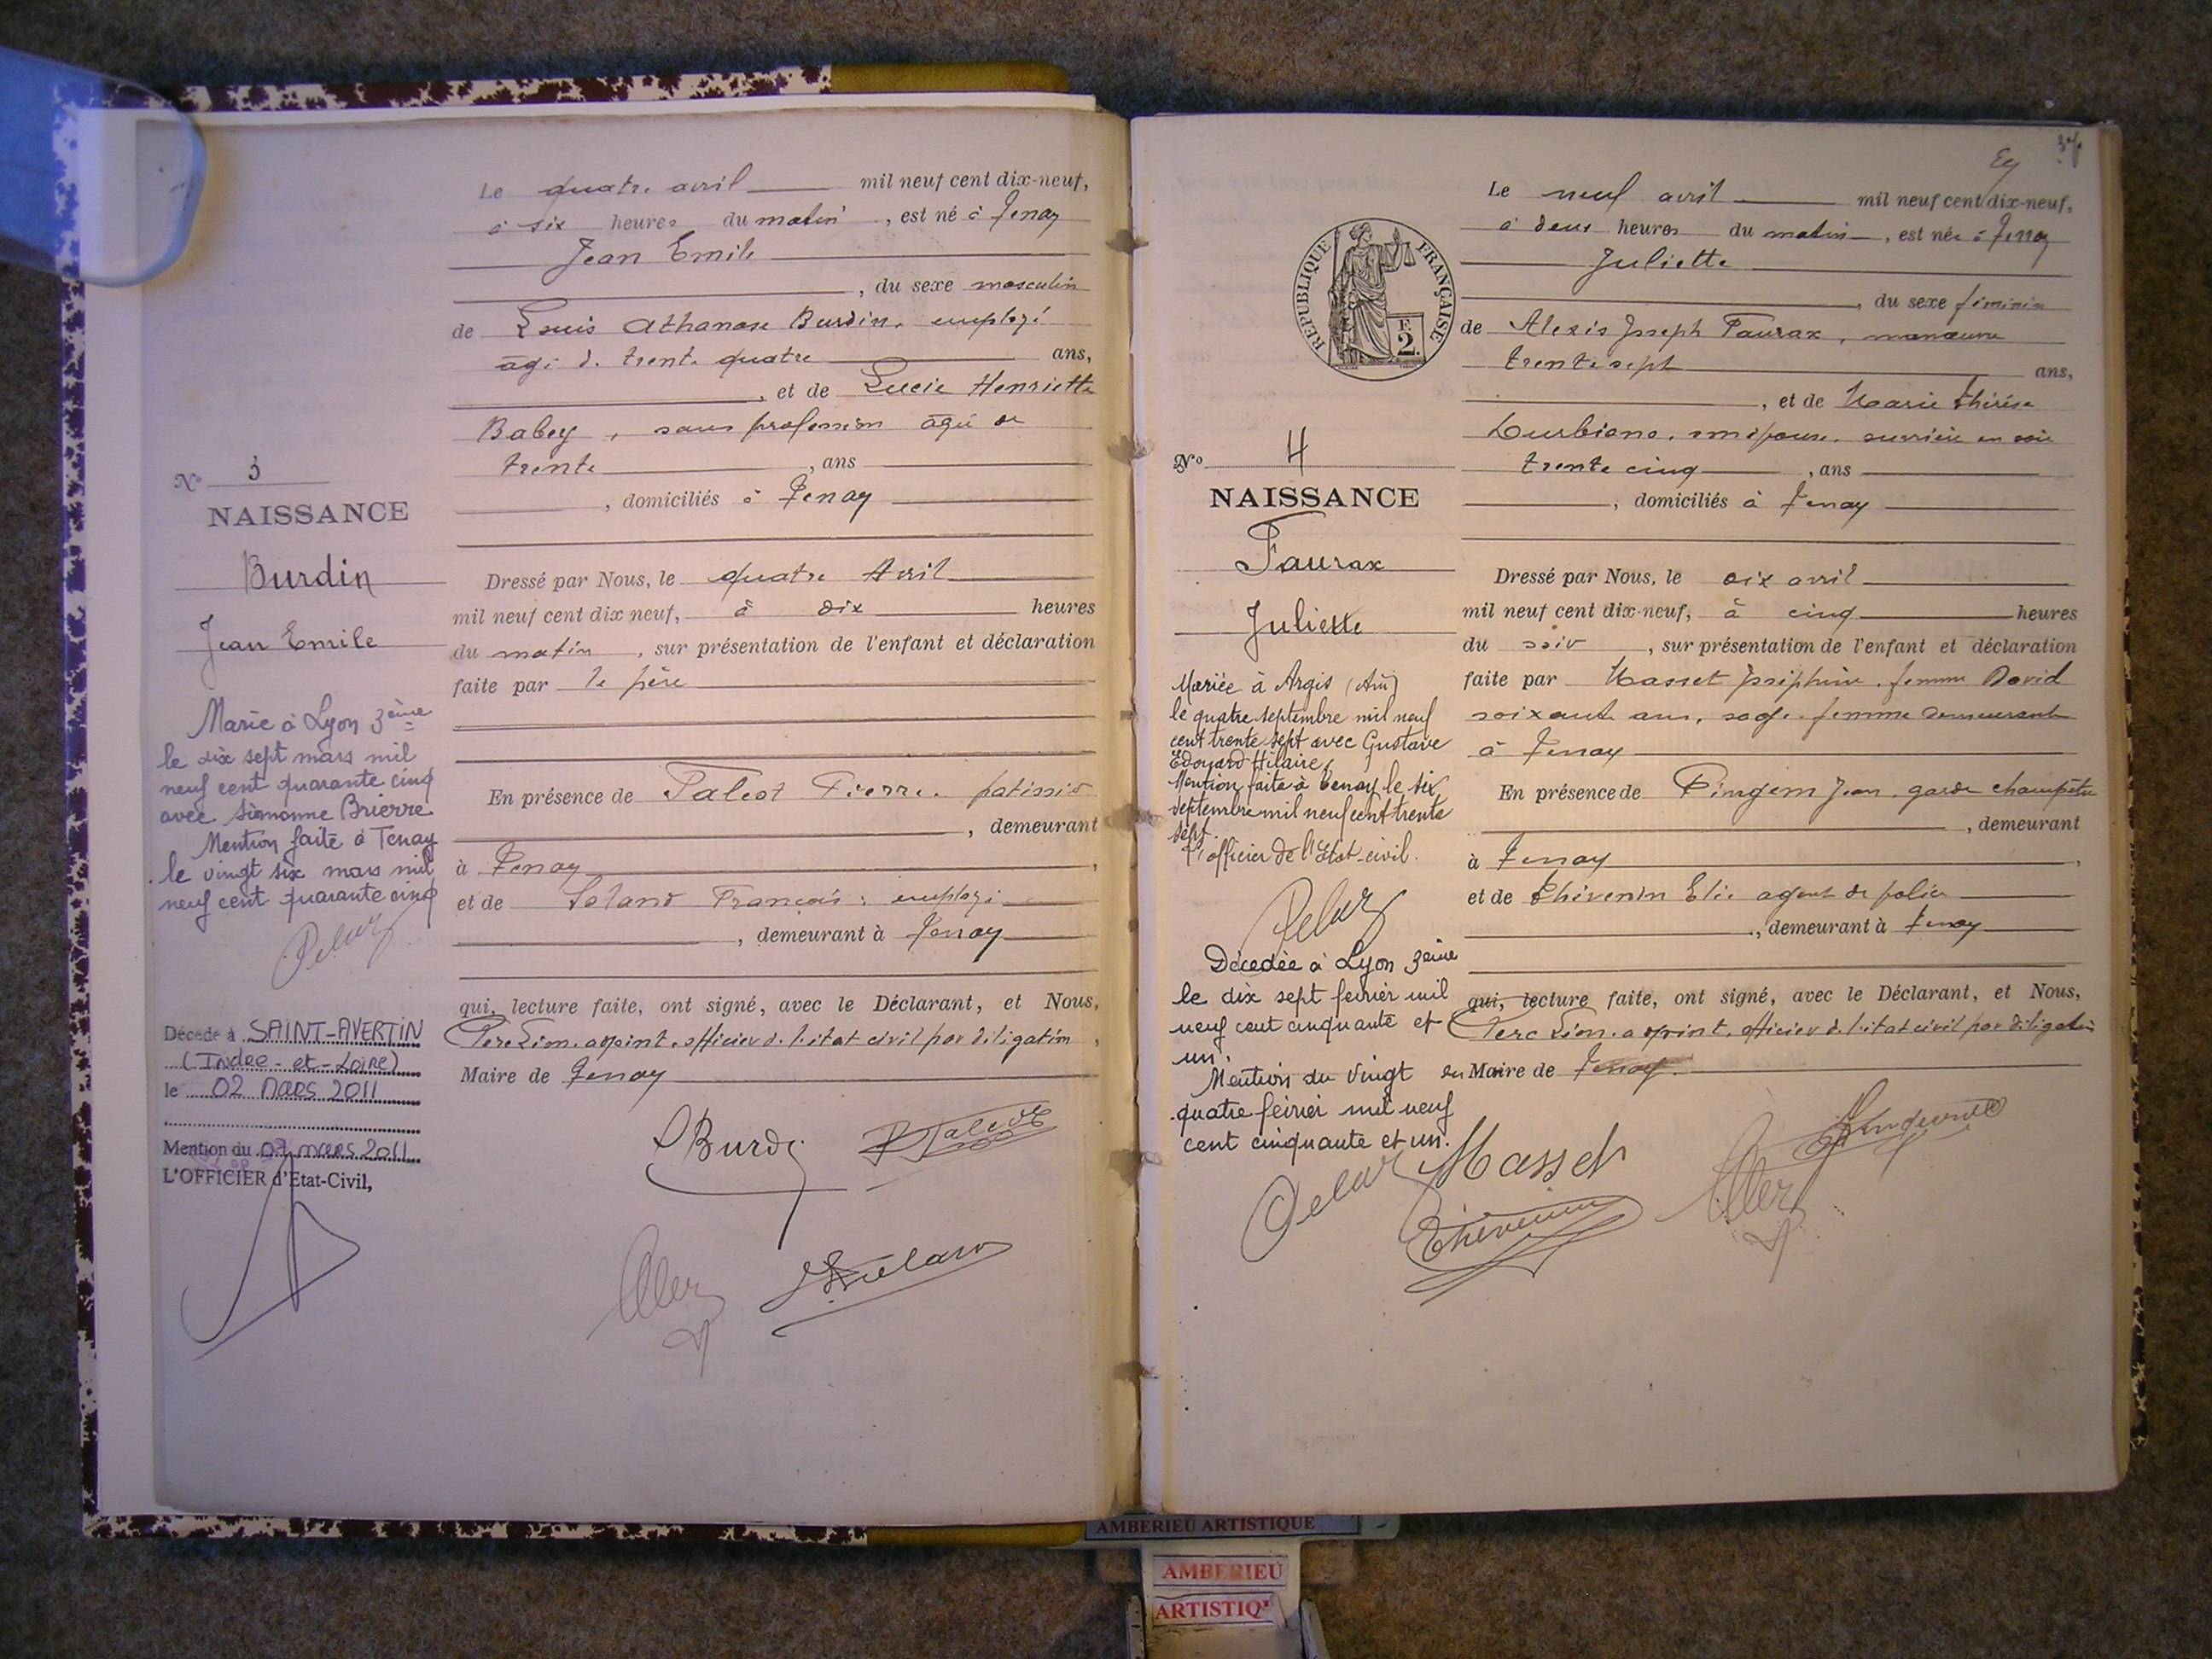 Le quatre avril mil neuf cent dix-neuf,
à six heures du matin, est né à Tenay
Jean Emile
, du sexe masculin
de Louis Athanase Burdin, employé
âgé de trente quatre ans,
, et de Lucie Henriette
Babey, sans profession âgée de
trente, ans
, domiciliés à Tenay
Dressé par Nous, le quatre Avril
mil neuf cent dix neuf, à dix heures
du matin, sur présentation de l'enfant et déclaration
faite par le père
En présence de Pierre patissier
, demeurant
à Tenay,
et de François, employé
, demeurant à Tenay
qui, lecture faite, ont signé, avec le Déclarant, et Nous,
adjoint, officier de l'état civil par délégation,
Maire de Tenay
N° 3
NAISSANCE
Burdin
Jean Emile
Marié à Lyon 3ème
le dix sept mars mil
neuf cent quarante cinq
avec Simonne Brierre
Mention faite à Tenay
le vingt six mars mil
neuf cent quarante cinq
Décédé à SAINT-AVERTIN
(Indre-et-Loire)
le 02 mars 2011
Mention du 07 mars 2011
L'OFFICIER d'Etat-Civil,
Le neuf avril mil neuf cent dix-neuf,
à deux heures du matin, est née à Tenay
Juliette
, du sexe féminin
de Alexis Joseph Faurax, manœuvre
trente sept ans,
, et de Marie Thérèse
Durbiano, son épouse, ouvrière en soie
trente cinq, ans
, domiciliés à Tenay
Dressé par Nous, le dix avril
mil neuf cent dix-neuf, à cinq heures
du soir, sur présentation de l'enfant et déclaration
faite par Masset Joséphine, femme David
soixante ans, sage-femme demeurant
à Tenay
En présence de Jean, garde champêtre
, demeurant
à Tenay,
et de Thévenin Elie agent de police
, demeurant à Tenay
qui, lecture faite, ont signé, avec le Déclarant, et Nous,
adjoint, officier de l'état civil par délégation
du Maire de Tenay
REPUBLIQUE FRANÇAISE
F.
2.
N° 4
NAISSANCE
Faurax
Juliette
Mariée à Argis (Ain)
le quatre septembre mil neuf
cent trente sept avec Gustave
Edouard Hilaire,
Mention faite à Tenay le six
septembre mil neuf cent trente
sept.
l'officier de l'Etat-civil.
Décédée à Lyon 3ème
le dix sept février mil
neuf cent cinquante et
un.
Mention du vingt
quatre février mil neuf
cent cinquante et un.
Masset
Thévenin
AMBERIEU ARTISTIQUE
AMBERIEU
ARTISTIQ